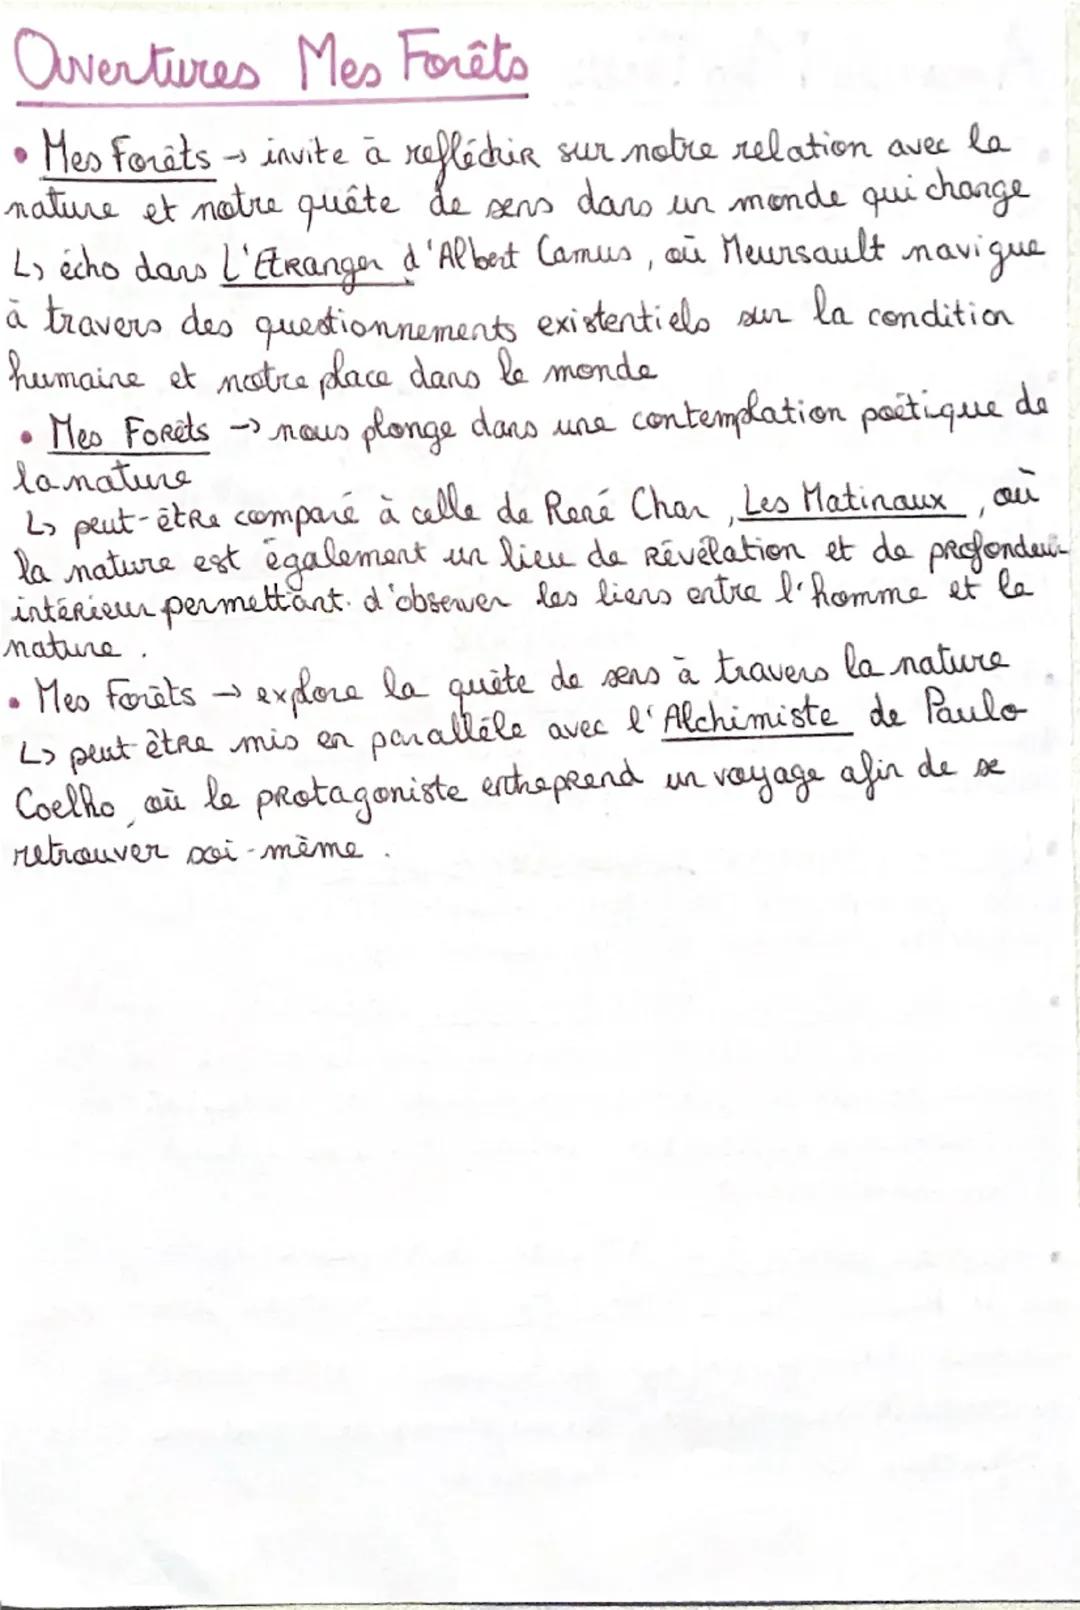 Ouvertures Mes Forêts
• Mes Forêts → invite à refléchir sur notre relation avec la
nature et notre quête de sens dans un monde qui change
↳ écho dans L'Etranger d'Albert Camus, où Meursault navigue
à travers des questionnements existentiels sur la condition
humaine et notre place dans le monde
• Mes Forêts → nous plonge dans une contemplation poétique de
la nature
↳ peut-être comparé à celle de René Char, Les Matinaux, où
la nature est également un lieu de révélation et de profondeur
intérieur permettant d'observer les liens entre l'homme et la
nature.
• Mes Forêts → explore la quête de sens à travers la nature
↳ peut être mis en parallèle avec l'Alchimiste de Paulo
Coelho, où le protagoniste entreprend un voyage afin de se
retrouver soi-même.